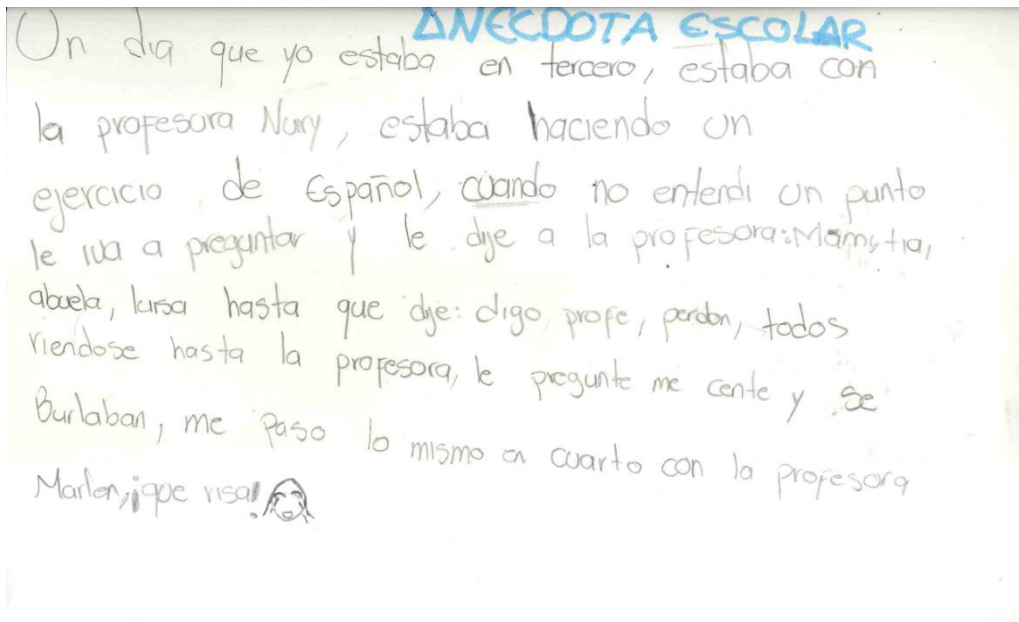 ANECDOTA ESCOLAR
Un dia que yo estaba en tercero, estaba con
la profesora Nury, estaba haciendo un
ejercicio de Español, cuando no entendi un punto
le iva a preguntar y le dije a la profesora: Mami, tia,
abuela, luisa hasta que dije: digo profe, perdon, todos
riendose hasta la profesora, le pregunte me cente y se
Burlaban, me paso lo mismo en cuarto con la profesora
Marlen, ¡que risa!